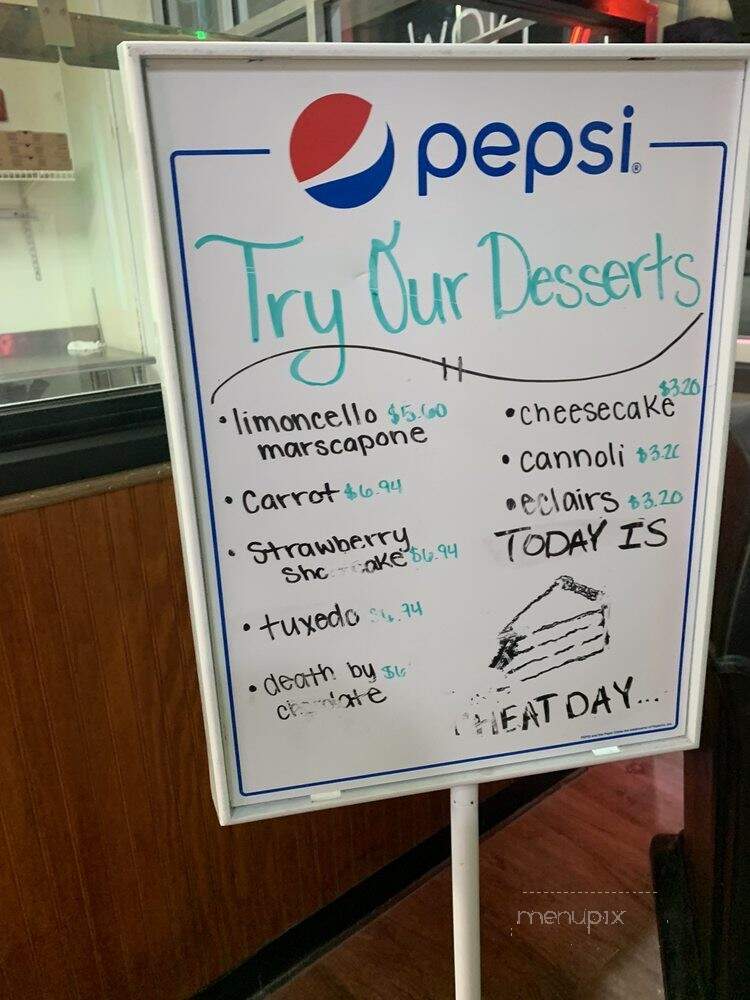 pepsi®
Try Our Desserts
• limoncello $5.60
marscapone
• Carrot $6.94
• Strawberry $6.94
• tuxedo
• death by
• cheesecake $3.20
• cannoli
• eclairs $3.20
TODAY IS
DAY...
menupix